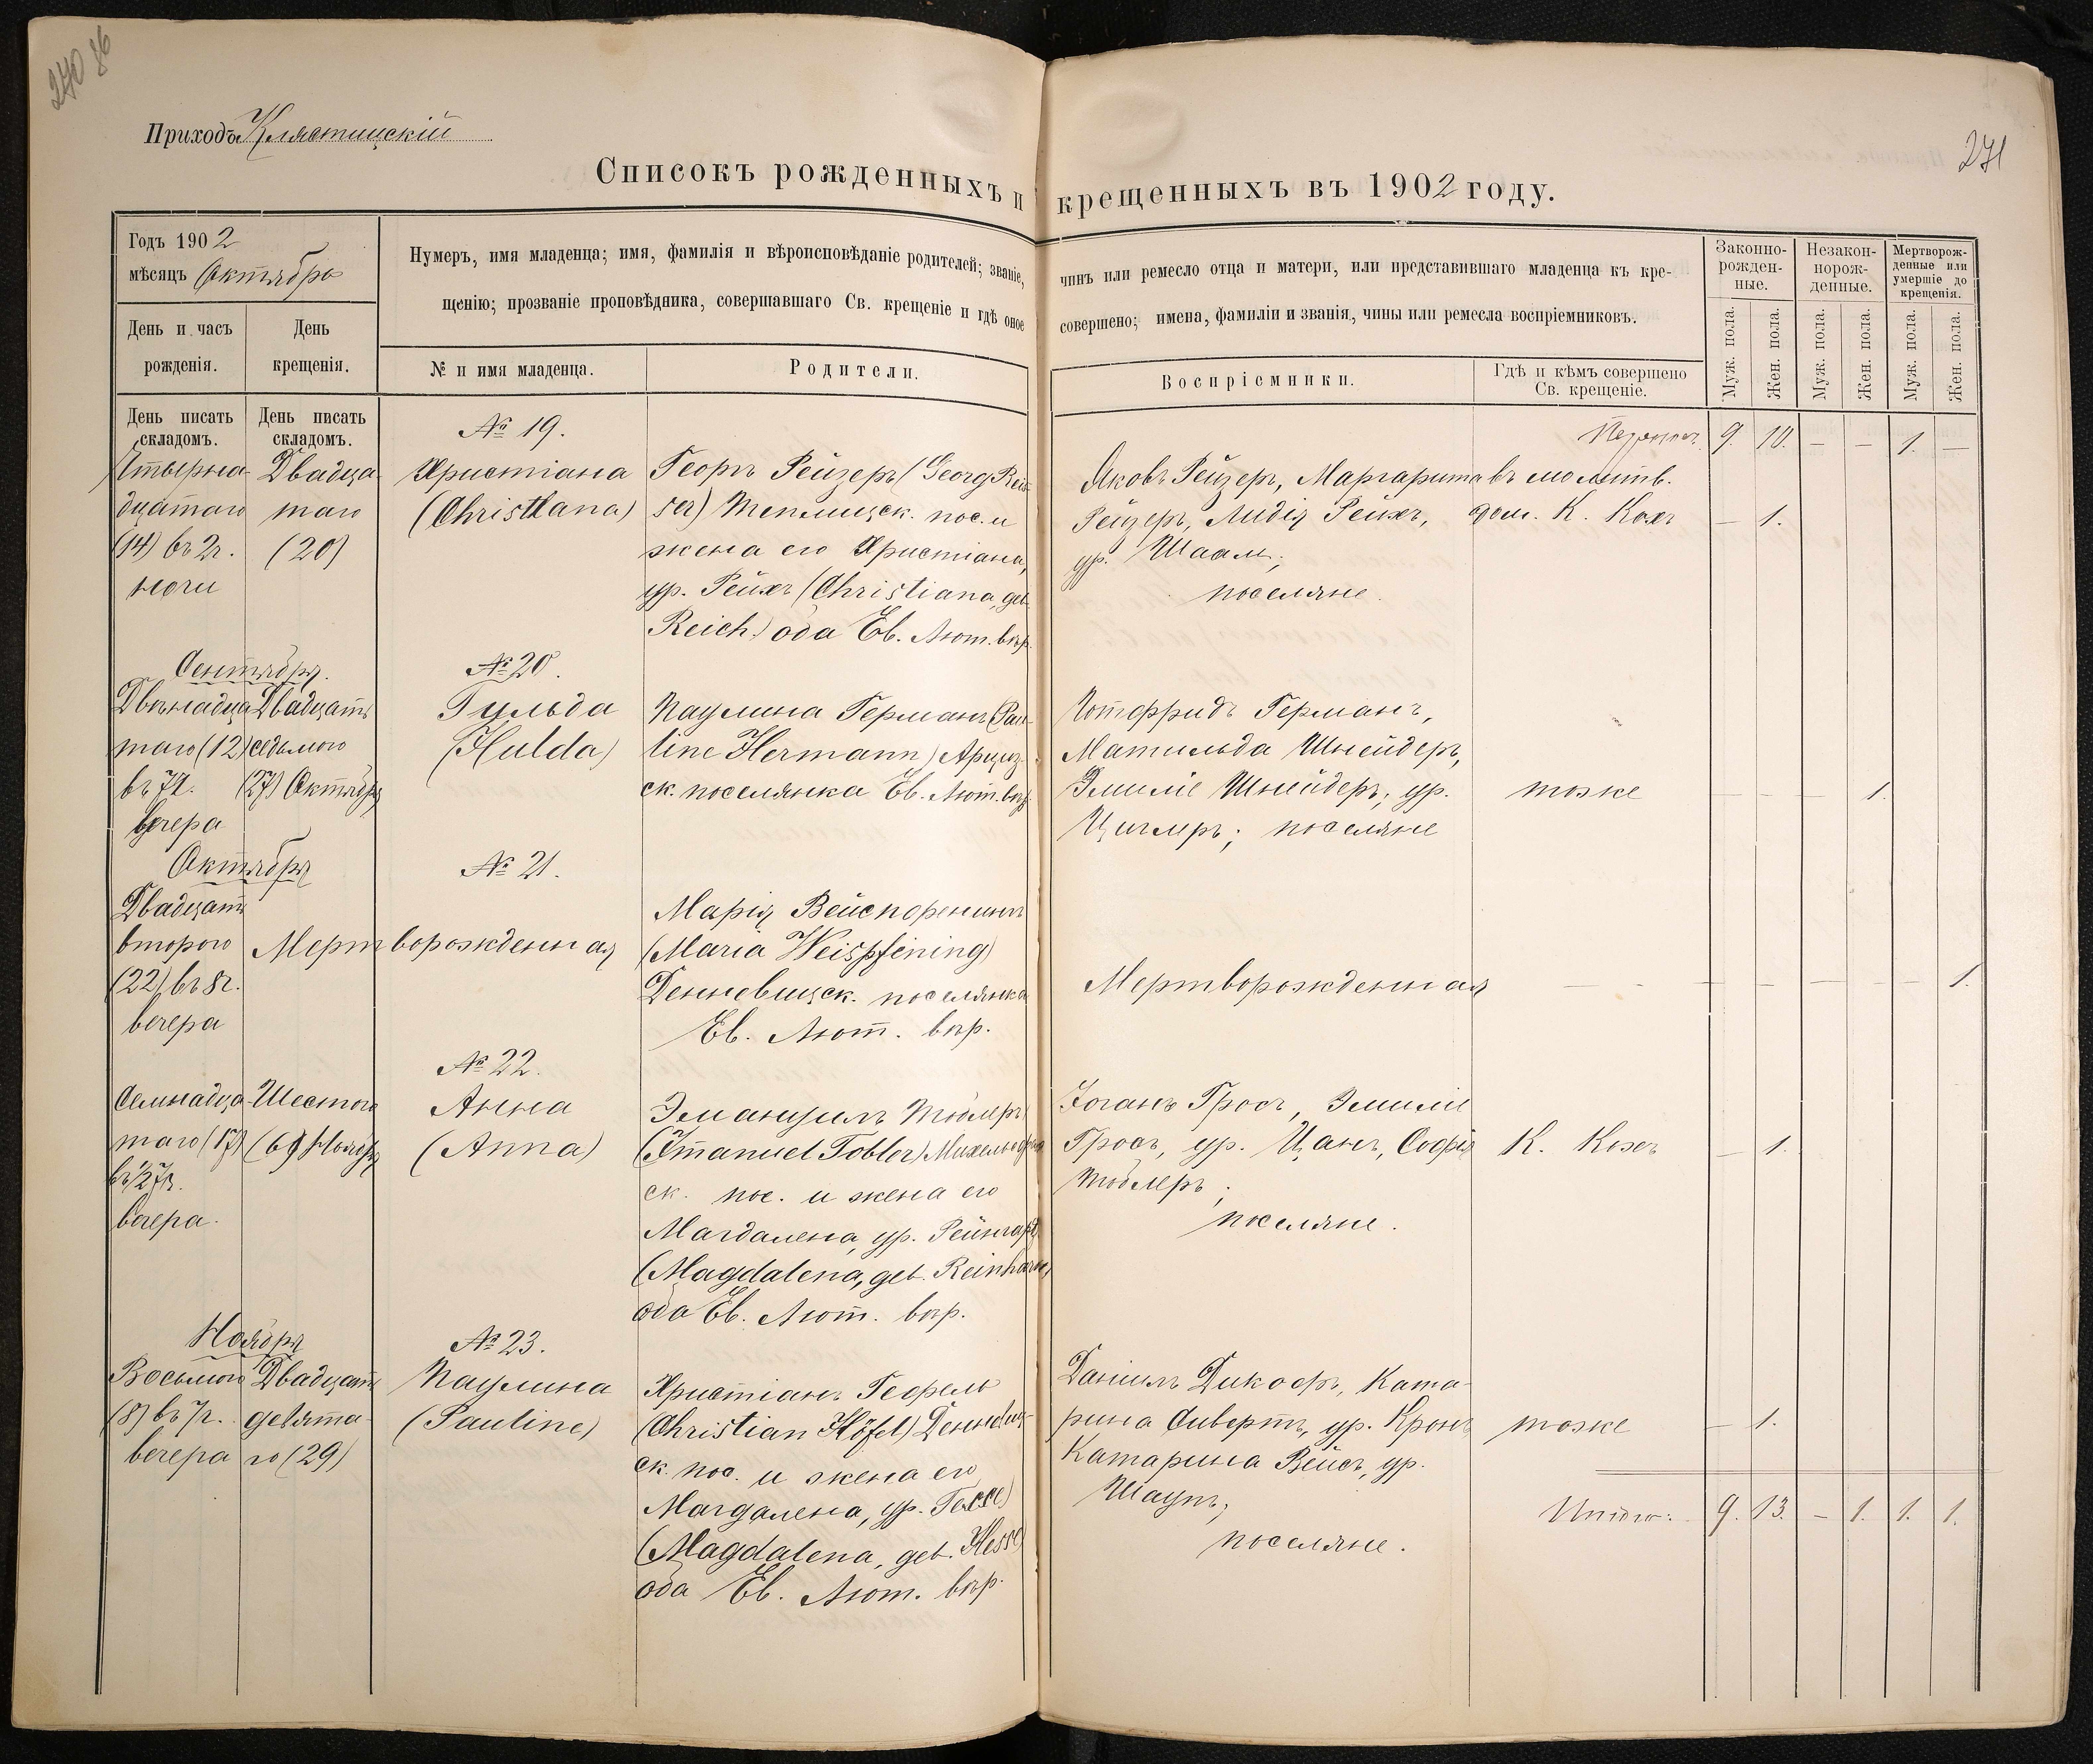 270 86
Приходъ Клястицскій
271
Списокъ рожденныхъ и крещенныхъ въ 1902 году.
Годъ 1902
мѣсяцъ Октябрь
День и часъ
рожденія.
День
крещенія.
Нумеръ, имя младенца; имя, фамилія и вѣроисповѣданіе родителей; званіе, чинъ или ремесло отца и матери, или представившаго младенца къ кре-
щенію; прозваніе проповѣдника, совершавшаго Св. крещеніе и гдѣ оное совершено; имена, фамиліи и званія, чины или ремесла воспріемниковъ.
№ и имя младенца.
Родители.
Воспріемники.
Гдѣ и кѣмъ совершено
Св. крещеніе.
Законно-
рожден-
ные.
Незакон-
норож-
денные.
Мертворож-
денные или
умершіе до
крещенія.
Муж. пола.
Жен. пола.
Муж. пола.
Жен. пола.
Муж. пола.
Жен. пола.
День писать
складомъ.
День писать
складомъ.
9. 10. — — 1. —
№ 19.
Четырна-
дцатаго
(14) въ 2ч.
ночи
Двадца-
таго
(20)
Христіана
(Christiana)
Георгъ Рейзеръ (Georg Rei-
ser) Теплицск. пос. и
жена его Христіана,
ур. Рейхъ (Christiana, geb.
Reich) оба Ев. Лют. вѣр.
Яковъ Рейзеръ, Маргарита
Рейзеръ, Лидія Рейхъ,
ур. Шаал;
поселяне.
въ молитв.
дом. К. Кохъ
— 1.
Сентября.
№ 20.
Двѣнадца
таго (12)
въ 7ч.
вечера
Двадцать
седьмого
(27) Октября
Гульда
(Hulda)
Паулина Германъ (Pau-
line Hermann) Арциз-
ск. поселянка Ев. Лют. вѣр.
Готфридъ Германъ,
Матильда Шнейдеръ,
Эмиліе Шнейдеръ, ур.
Циглеръ; поселяне
тоже
— — — 1.
Октября
№ 21.
Двадцать
второго
(22) въ 8ч.
вечера
Мертворожденная
Марія Вейспфенингъ
(Maria Weispfening)
Денневицск. поселянка
Ев. Лют. вѣр.
Мертворожденная
— — — — — — — 1.
№ 22.
Семнадца
таго (17)
въ ½7ч.
вечера.
Шестого
(6) Ноября
Анна
(Anna)
Эмануилъ Тоблеръ
(Immanuel Tobler) Михельсдорф
ск. пос. и жена его
Магдалена, ур. Рейнгардт
(Magdalena, geb. Reinhardt)
оба Ев. Лют. вѣр.
Іоганъ Гросъ, Эмиліе
Гросъ, ур. Цанъ, Софія
Тоблеръ;
поселяне.
К. Кохъ
— 1.
Ноября
№ 23.
Восьмого
(8) въ 7ч.
вечера
Двадцать
девята-
го (29)
Паулина
(Pauline)
Христіанъ Гефель
(Christian Höfel) Денневиц-
ск. пос. и жена его
Магдалена, ур. Гессе
(Magdalena, geb. Hesse)
оба Ев. Лют. вѣр.
Даніилъ Дикофъ, Ката-
рина Сивертъ, ур. Кронъ
Катарина Вейсъ, ур.
Шаупъ;
поселяне.
тоже
— 1.
Итого: 9. 13. — 1. 1. 1.